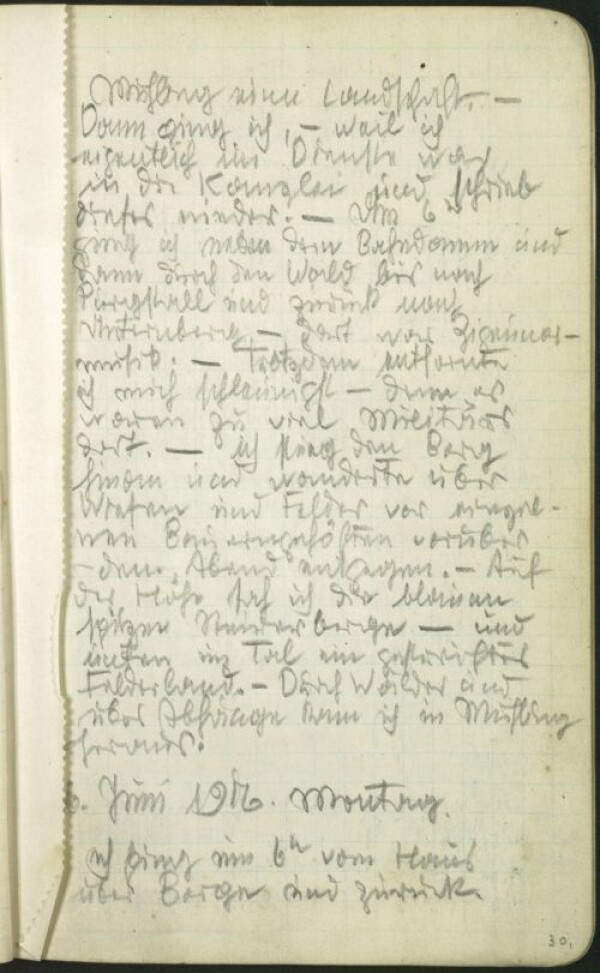 Mühling eine Landschaft. —
Dann ging ich, — weil ich
eigentlich im Dienste war
in die Kanzlei und schrieb
dieses nieder. — Um 6h
ging ich neben dem Bahndamm und
dann durch den Wald bis nach
Purgstall und zurück nach
— Dort war Zigeuner-
musik. — Trotzdem entfernte
ich mich schleunigst — denn es
waren zu viel Militärs
dort. — Ich stieg den Berg
hinan und wanderte über
Wiesen und Felder vor einzel-
nen Bauerngehöften vorüber
— dem Abend entgegen. — Auf
der Höhe sah ich die blauen
spitzen berge — und
unten im Tal ein
Felderland. — Durch Wälder und
über Abhänge kam ich in Mühling
heraus.
Juni 1916. Montag.
Ich ging um 6h vom Haus
über Berge und zurück.
30.